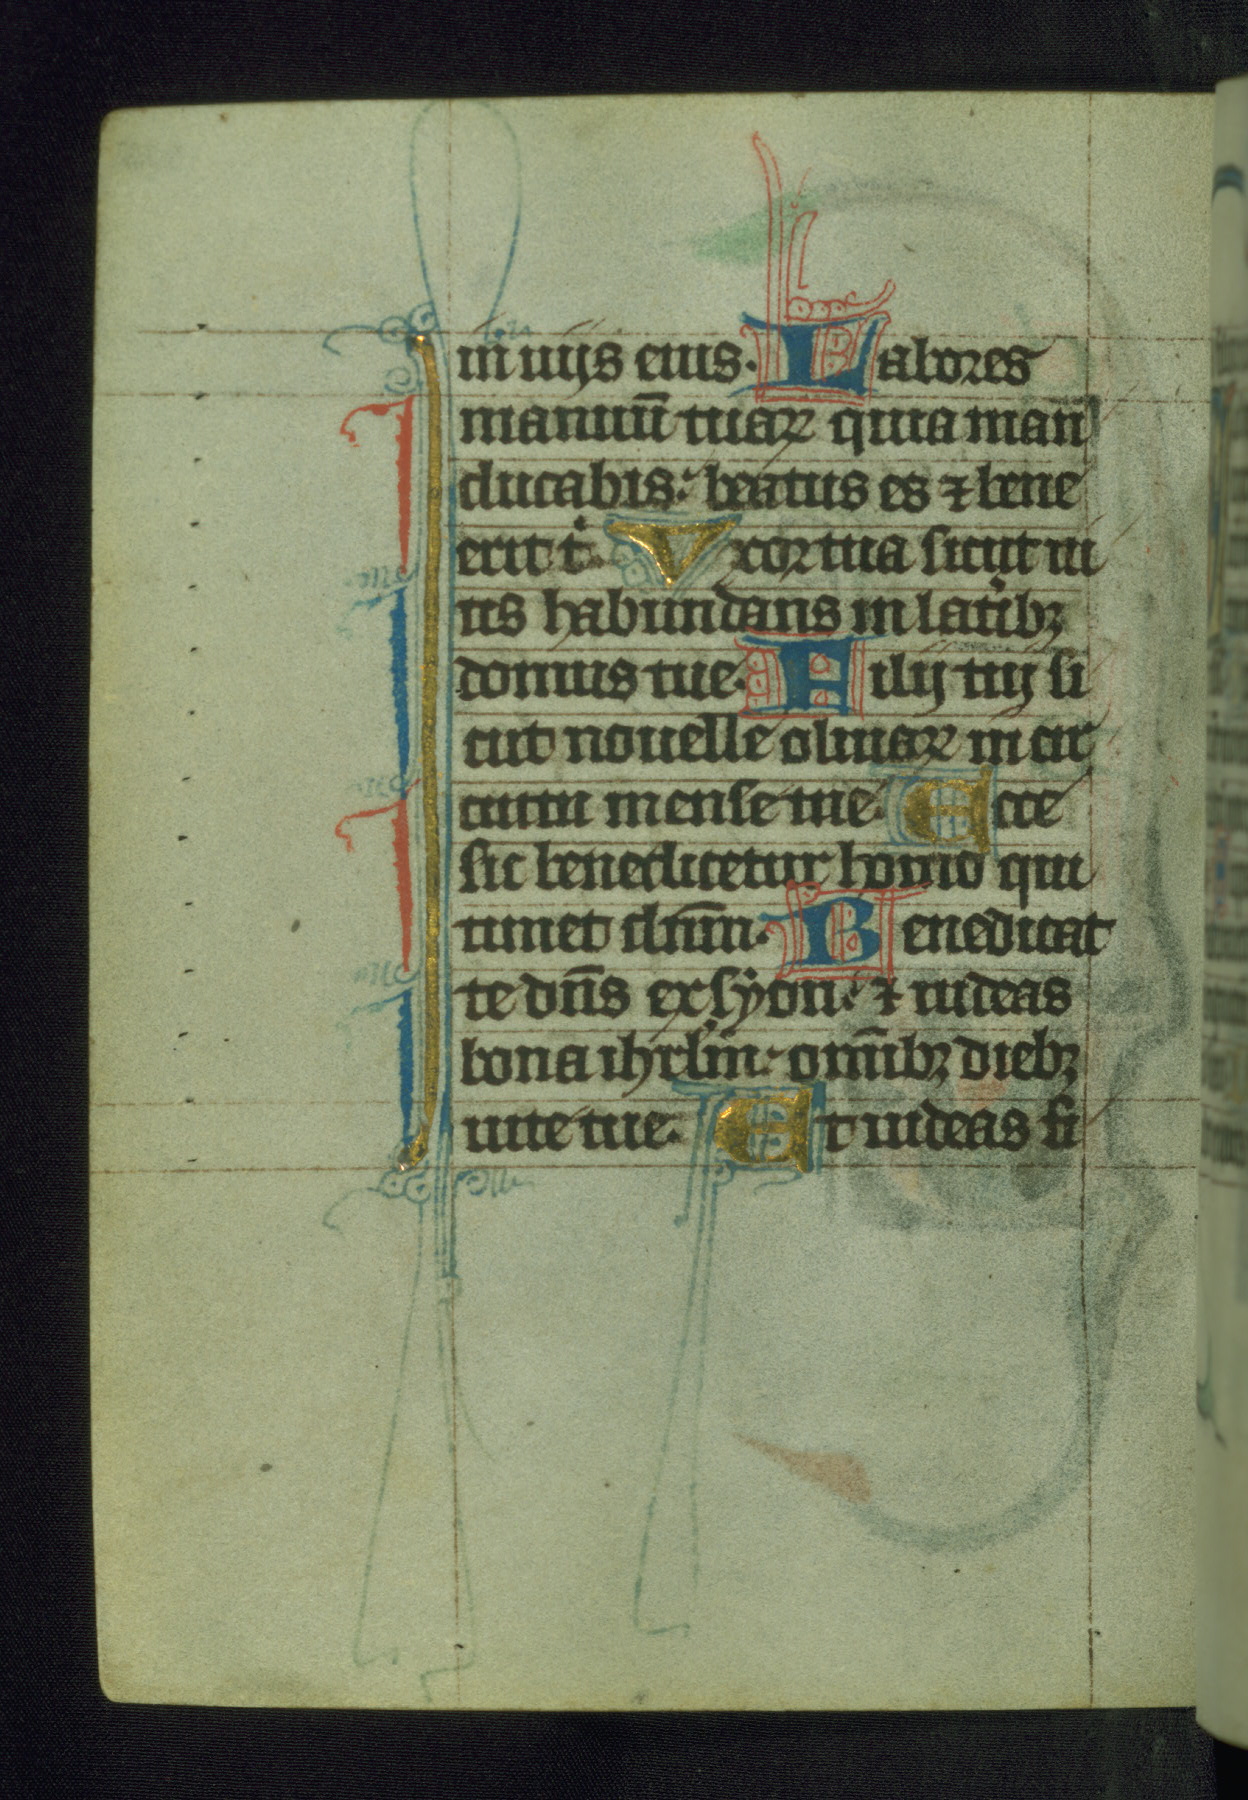 in uijs eius. Labores
manuū tuaꝝ quia man
ducabis: beatus es ⁊ bene
erit t̾. Uxor tua sicut ui
tis habundans in lat̾ibꝫ
domus tue. Filij tuj si
cut nouelle oliuaꝝ in cir
cuitu mense tue. Ecce
sic benedicetur homo qui
timet dn̄m. Benedicat
te dn̄s ex syon: ⁊ uideas
bona ihrl̾m: om̄ibꝫ diebꝫ
uite tue. Et uideas fi